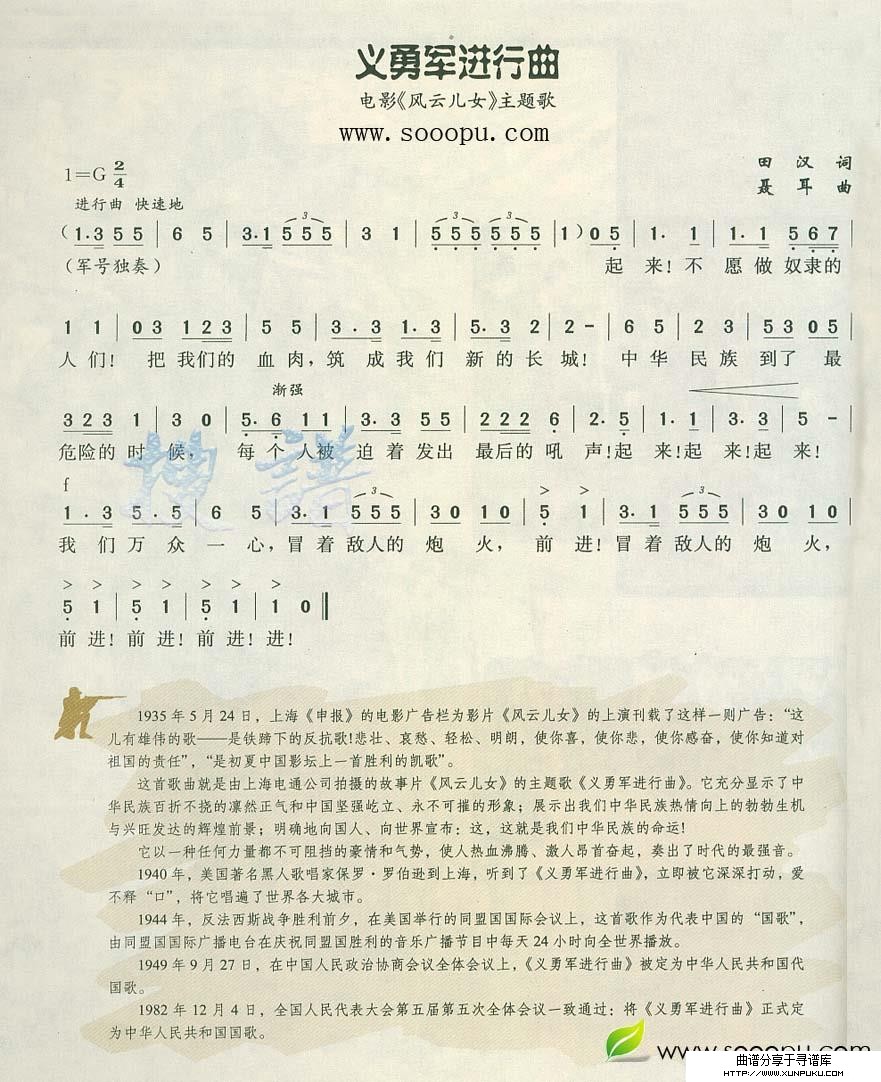 义勇军进行曲
电影《风云儿女》主题歌
www.sooopu.com
1=G 2/4
田 汉 词
进行曲 快速地
聂 耳 曲
(1·3 5 5 | 6 5 | 3·1 5 5 5 | 3 1 | 5 5 5 5 5 5 | 1) 0 5 | 1· 1 | 1·1 5 6 7 |
(军号独奏) 起 来! 不 愿 做 奴隶的
1 1 | 0 3 1 2 3 | 5 5 | 3·3 1·3 | 5·3 2 | 2 - | 6 5 | 2 3 | 5 3 0 5 |
人 们! 把 我们的 血 肉, 筑 成 我 们 新 的 长 城! 中 华 民 族 到 了 最
渐强
3 2 3 1 | 3 0 | 5·6 1 1 | 3·3 5 5 | 2 2 2 6 | 2·5 | 1·1 | 3·3 | 5 - |
危险的 时 候, 每 个 人被 迫着 发出 最后的 吼 声! 起 来! 起 来! 起 来!
f
1·3 5·5 | 6 5 | 3·1 5 5 5 | 3 0 1 0 | 5 1 | 3·1 5 5 5 | 3 0 1 0 |
我 们 万 众 一 心, 冒 着 敌人的 炮 火, 前 进! 冒 着 敌人的 炮 火,
5 1 | 5 1 | 5 1 | 1 0 ‖
前 进! 前 进! 前 进! 进!
搜 谱
1935 年 5 月 24 日,上海《申报》的电影广告栏为影片《风云儿女》的上演刊载了这样一则广告:“这
儿有雄伟的歌——是铁蹄下的反抗歌!悲壮、哀愁、轻松、明朗,使你喜,使你悲,使你感奋,使你知道对
祖国的责任”,“是初夏中国影坛上一首胜利的凯歌”。
这首歌曲就是由上海电通公司拍摄的故事片《风云儿女》的主题歌《义勇军进行曲》。它充分显示了中
华民族百折不挠的凛然正气和中国坚强屹立、永不可摧的形象;展示出我们中华民族热情向上的勃勃生机
与兴旺发达的辉煌前景;明确地向国人、向世界宣布:这,这就是我们中华民族的命运!
它以一种任何力量都不可阻挡的豪情和气势,使人热血沸腾、激人昂首奋起,奏出了时代的最强音。
1940 年,美国著名黑人歌唱家保罗·罗伯逊到上海,听到了《义勇军进行曲》,立即被它深深打动,爱
不释“口”,将它唱遍了世界各大城市。
1944 年,反法西斯战争胜利前夕,在美国举行的同盟国国际会议上,这首歌作为代表中国的“国歌”,
由同盟国国际广播电台在庆祝同盟国胜利的音乐广播节目中每天 24 小时向全世界播放。
1949 年 9 月 27 日,在中国人民政治协商会议全体会议上,《义勇军进行曲》被定为中华人民共和国代
国歌。
1982 年 12 月 4 日,全国人民代表大会第五届第五次全体会议一致通过:将《义勇军进行曲》正式定
为中华人民共和国国歌。
www.sooopu.com
曲谱分享于寻谱库
HTTP://WWW.XUNPUKU.COM